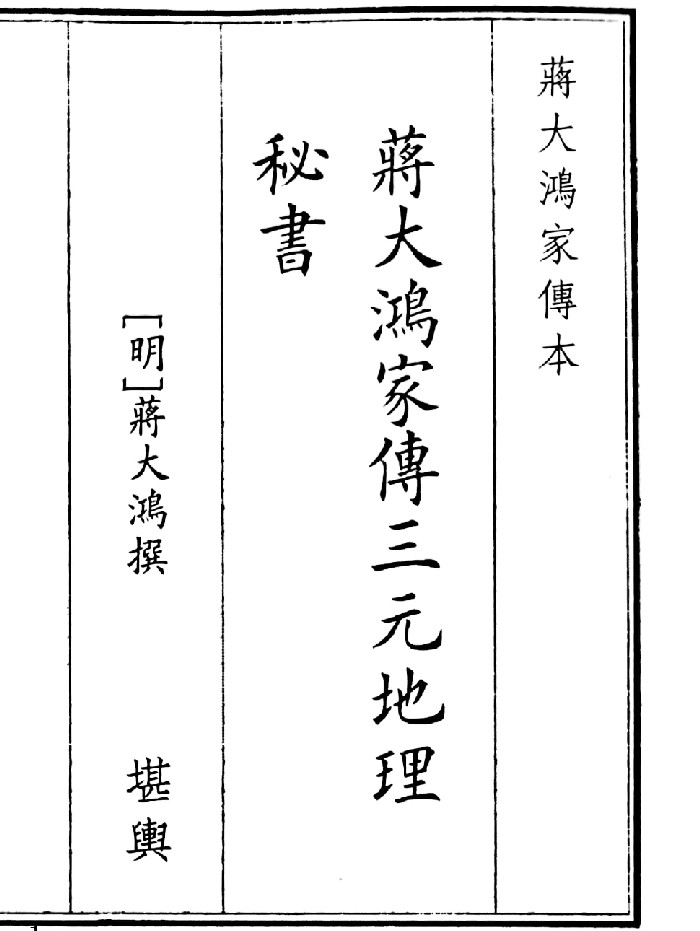 蔣大鴻家傳本
蔣大鴻家傳三元地理
秘書
[明]蔣大鴻撰
堪輿